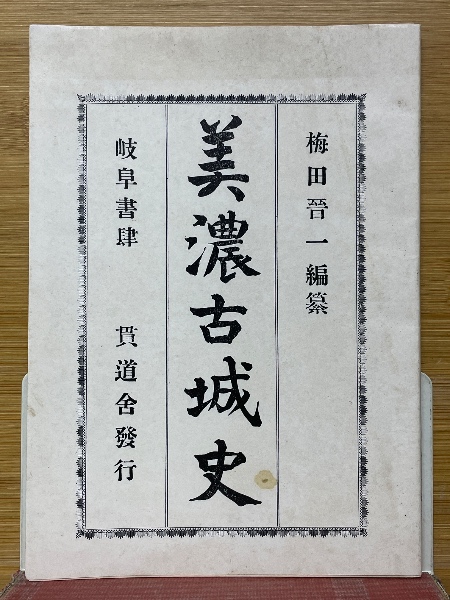 梅田晉一編纂
美濃古城史
岐阜書肆 貫道舍發行